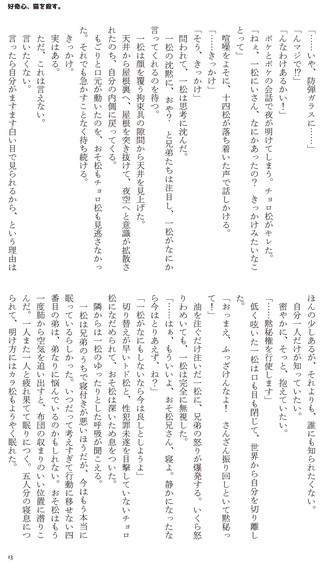 好奇心、猫を殺す。
「……いや、防弾ガラスに……」
「んマジで!?」
「んなわけあるかい!」
ボケとボケの会話で夜が明けてしまう。チョロ松がキレた。
「ねぇ、一松にいさん、なにかあったの? きっかけみたいなこ
とって」
喧噪をよそに、十四松が落ち着いた声で話しかける。
「そう、きっかけ」
「……きっかけ……」
問われて、一松は思考に沈んだ。
一松の沈黙に、おや? と兄弟たちは注目し、一松がなにか
言ってくれるのを待つ。
一松は顔を覆う拘束具の隙間から天井を見上げた。
天井から屋根裏へ、屋根を突き抜けて、夜空へと意識が拡散さ
れたのち、自分の内側に戻ってくる。
もごりと口元が動いたのを、おそ松もチョロ松も見逃さなかっ
た。それでも急かすことなく待ち続ける。
きっかけ。
実はある。
ただ、これは言えない。
言いたくない。
言ったら自分がますます白い目で見られるから、という理由は
ほんの少しあるが、それよりも、誰にも知られたくない。
自分一人だけが知っていたい。
密やかに、そっと、抱えていたい。
「……黙秘権を行使します」
低く呟いた一松は口も目も閉じて、世界から自分を切り離し
た。
「おっまえ、ふっざけんなよ! さんざん振り回しといて黙秘っ
油を注ぐだけ注いだ一松に、兄弟の怒りが爆発する。いくら怒
りわめいても、一松は完全に無視した。
「……はぁ、もういいよ、おそ松兄さん、寝よ。静かになったな
ら今はとりあえず、ね?」
「一松がなにもしないなら今は良しとしようよ」
切り替えが早いトド松と、性犯罪未遂を目撃していないチョロ
松になだめられて、おそ松は深いため息をついた。
隣からは一松のゆったりとした呼吸が聞こえる。
一松は兄弟のうちで寝付きが悪いほうだが、今はもう本当に
眠っているらしかった。いつだって考えすぎて行動に移せない四
番目の弟は、弟なりに悩んでいるのかもしれない。おそ松はもう
一度肺から空気を追い出すと、布団の収まりのいい位置に潜りこ
んだ。一人また一人と疲れ果てて眠りにつく。五人分の寝息につ
られて、明け方にはカラ松もようやく眠れた。
13